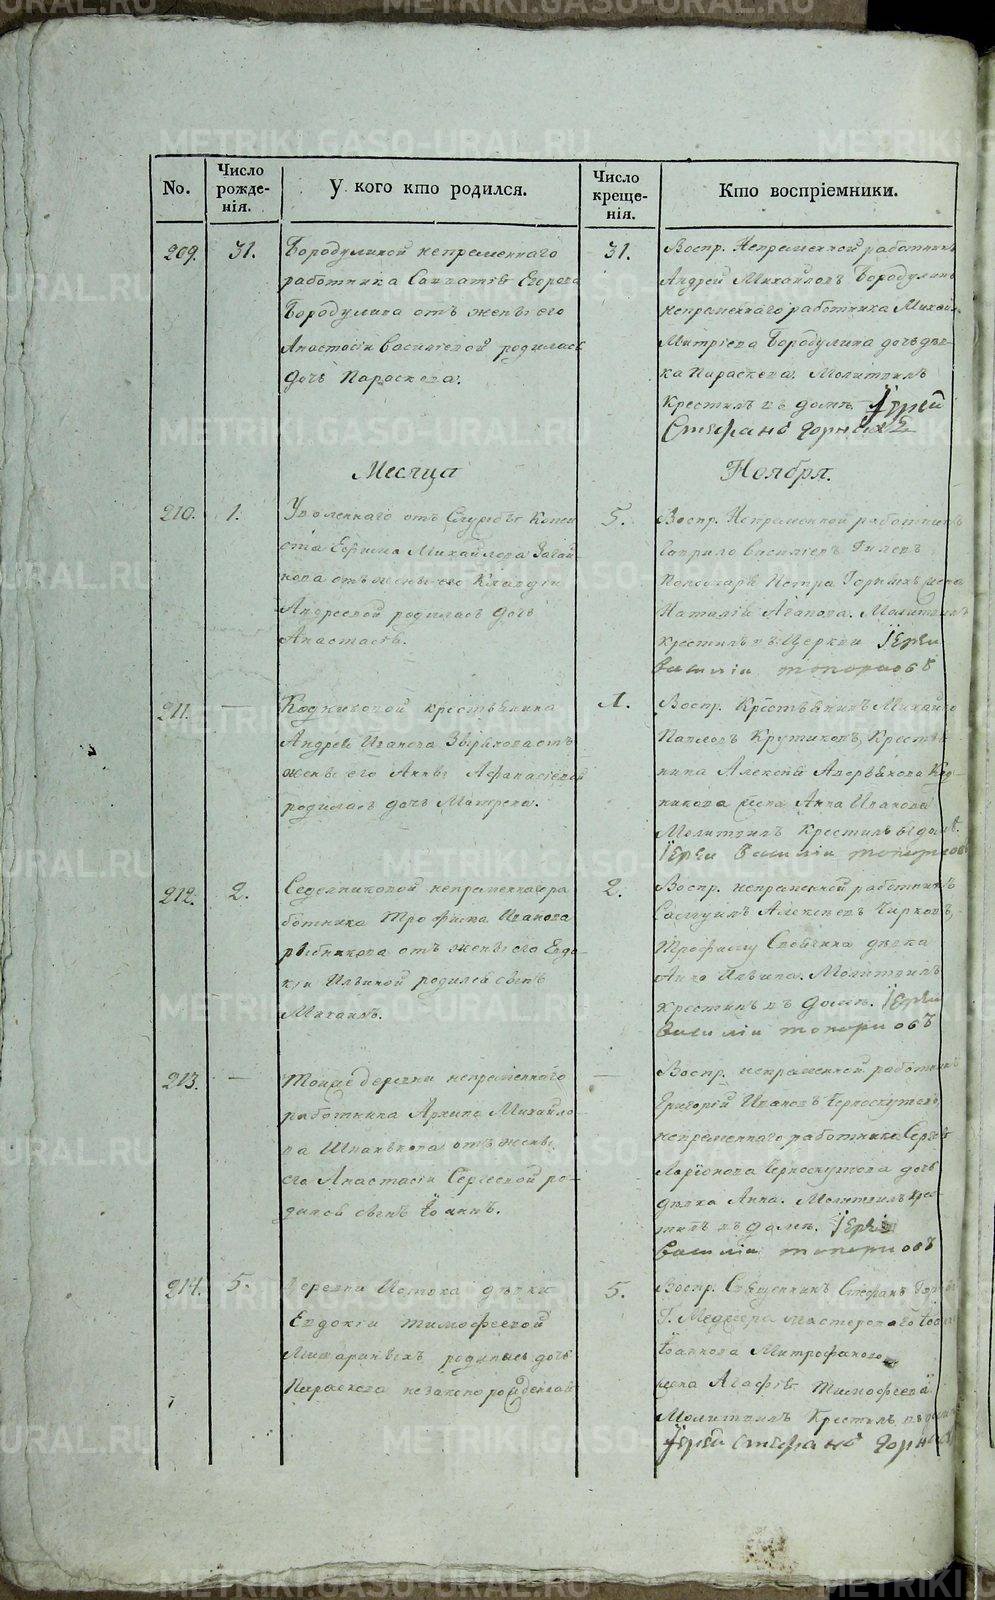 No.
Число рожде-
нія.
У кого кто родился.
Число креще-
нія.
Кто воспріемники.
209.
31.
Бородулиной непременнаго
работника Савватія Егорова
Бородулина отъ жены его
Анастасіи Васильевой родилась
дочь Параскева.
31.
Воспр. Непременной работникъ
Андрей Михайловъ Бородулинъ
непременнаго работника Михаил
Митріева Бородулина дочь дѣв-
ка Параскева. Молитвилъ
Крестилъ въ домѣ Іерей
Стефанъ Горныхъ
Месяца
Ноября.
210.
1.
Уволеннаго отъ Службы Копеи
ста Ефима Михайлова
кова отъ жены его Клавдіи
Андреевой родилась дочь
Анастасія.
5.
Воспр. Непременной работникъ
Гаврило Васильевъ Гилевъ
Пономаря Петра Горныхъ жена
Наталія Агапова. Молитвилъ
крестилъ въ Церкви Іерей
Василій Топорковъ
211.
—
Кодниковой крестьянина
Андрея Иванова Звѣрькова отъ
жены его Анны Афанасіевой
родилась дочь Матрена.
1.
Воспр. Крестьянинъ Михайло
Павловъ Крутиковъ, Крестья
нина Алексѣя Аверьянова Код-
никова жена Анна Иванова
Молитвилъ крестилъ въ домѣ.
Іерей Василій Топорковъ
212.
2.
Седельниковой непременнаго ра
ботника Трофима Иванова
рыбникова отъ жены его Евдо-
кіи Ильиной родился сынъ
Михаилъ.
2.
Воспр. непременной работникъ
Самуилъ Алексѣевъ Чирковъ,
Трофима дѣвка
Анна Ильина. Молитвилъ
крестилъ въ домѣ. Іерей
Василій Топорковъ
213.
—
Тоиже деревни непременнаго
работника Архипа Михайло
ва отъ жены
его Анастасіи Сергеевой ро-
дился сынъ Іоаннъ.
—
Воспр. непременной работникъ
Григорій Ивановъ Черноскутовъ
непременнаго работника Сергѣя
Ларіонова Черноскутова дочь
дѣвка Анна. Молитвилъ кре-
тилъ въ домѣ. Іерей
Василій Топорковъ
214.
5.
Деревни Истока дѣвки
Евдокіи Тимофеевой
родилась дочь
Параскева незаконорожденная
5.
Воспр. Священникъ Стефанъ Горныхъ
Г. мастероваго
Іоаннова Митрофанова
жена Агафія Тимофеева
Молитвилъ Крестилъ въ домѣ
Іерей Стефанъ Горныхъ
METRIKI.GASO-URAL.RU